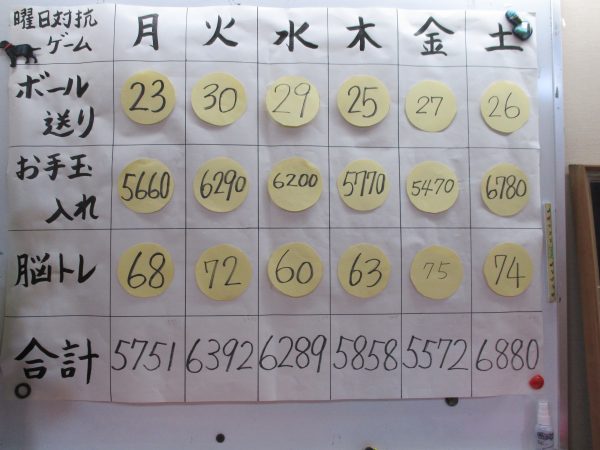 曜日対抗
ゲーム
月 火 水 木 金 土
ボール
送り
23 30 29 25 27 26
お手玉
入れ
5660 6290 6200 5770 5470 6780
脳トレ
68 72 60 63 75 74
合計
5751 6392 6289 5858 5572 6880